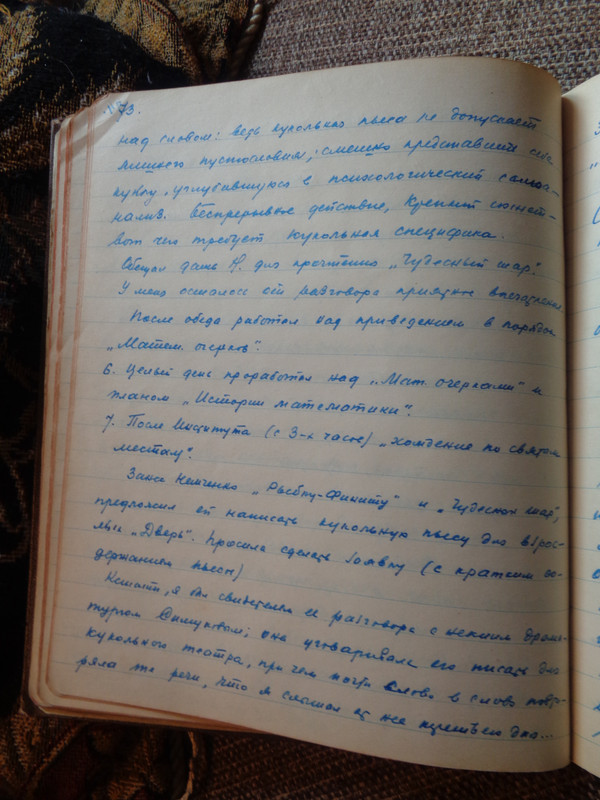 73.
над словом: ведь кукольная пьеса не допускает
пустословия; смешно представить себе
куклу, углубившуюся в психологический самоа-
нализ. Беспрерывное действие, крепкий сюжет-
вот чего требует кукольная специфика.
Обещал дать Н. для прочтения „Чудесный шар".
У меня осталось от разговора приятное впечатление.
После обеда работал над приведением в порядок
„Матем. очерков".
6. Целый день проработал над „Мат. очерками" и
планом „Истории математики".
7. После Института (с 3-х часов) „хождение по святым
местам".
Занес Немченко „Рыбку-Финиту" и „Чудесный шар",
предложил ей написать кукольную пьесу для взрос-
лых „Дверь". Просила сделать заявку (с кратким со-
держанием пьесы)
Кстати, я был свидетелем ее разговора с неким драма-
тургом Симуковым; она уговаривала его писать для
кукольного театра, при чем почти слово в слово повто-
ряла те речи, что я слышал от нее третьего дня...